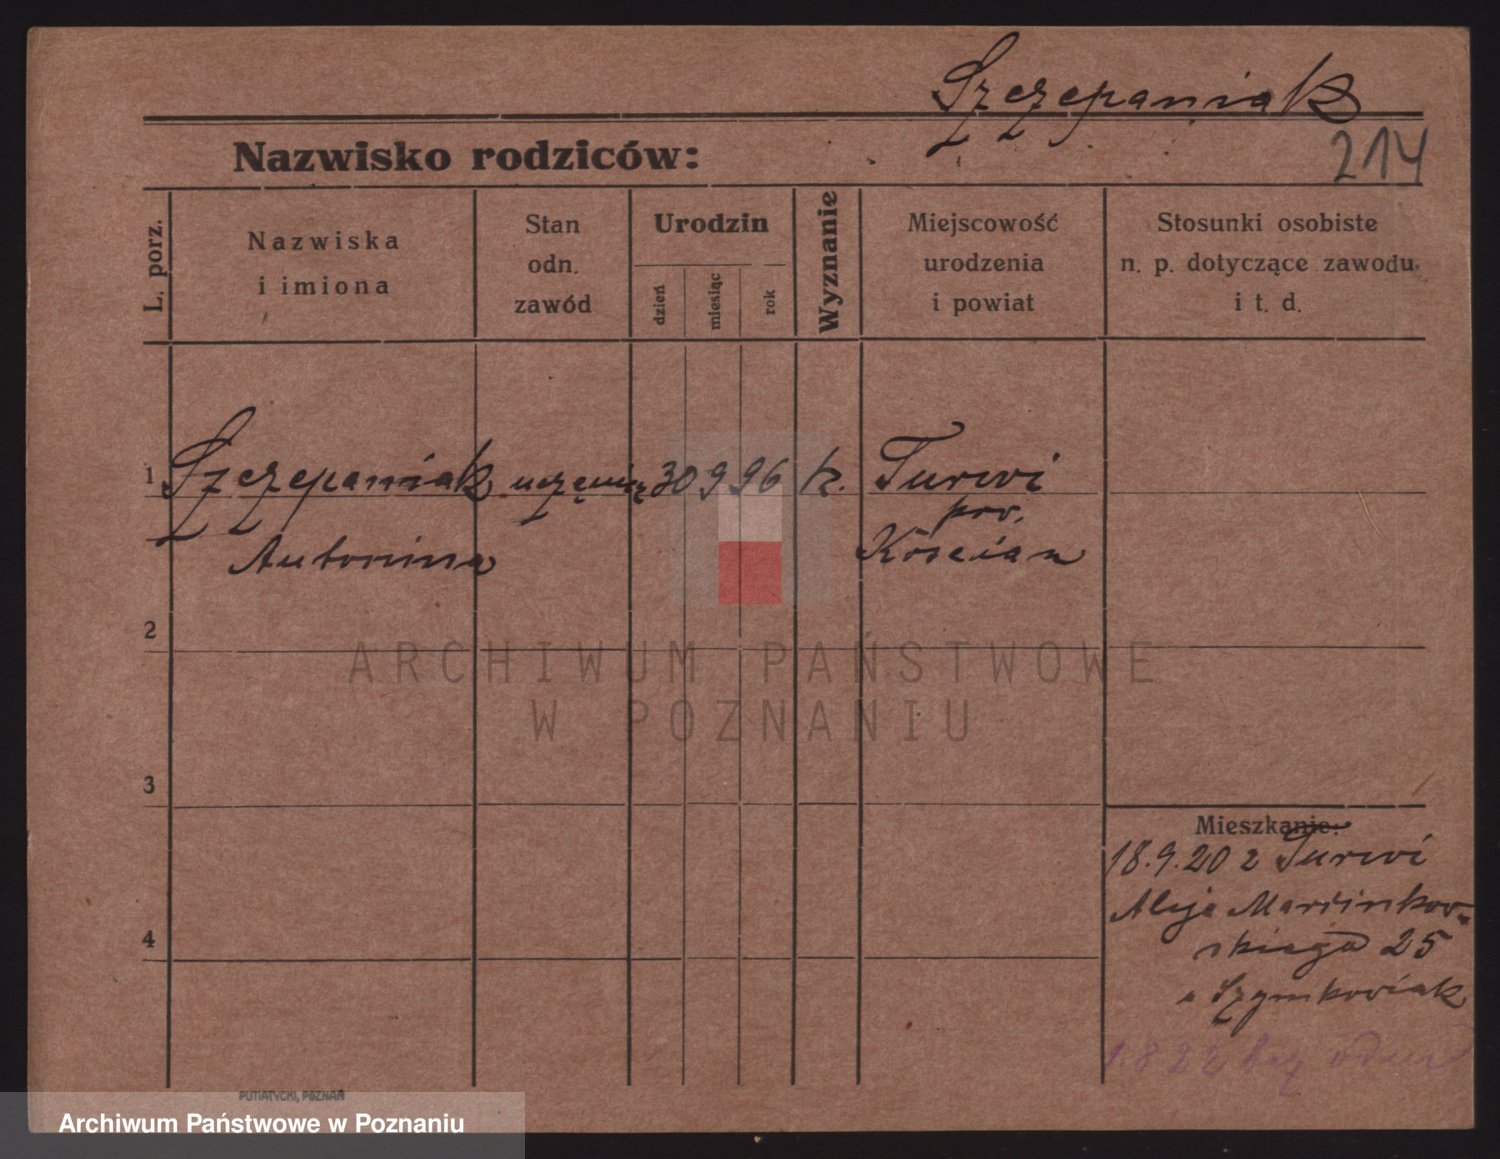 Szczepaniak
214
Nazwisko rodziców:
L. porz.
Nazwiska
i imiona
Stan
odn.
zawód
Urodzin
dzień
miesiąc
rok
Wyznanie
Miejscowość
urodzenia
i powiat
Stosunki osobiste
n. p. dotyczące zawodu
i t. d.
1 Szczepaniak 30 9 96 k. Turwi
pow.
Antonina Kościan
2
ARCHIWUM PAŃSTWOWE
W POZNANIU
3
Mieszkanie:
18.9.20 z Turwi
Aleja Marcinkow-
skiego 25
u Szymkowiak
4
1.8 22 bez
PUTIATYCKI, POZNAŃ
Archiwum Państwowe w Poznaniu